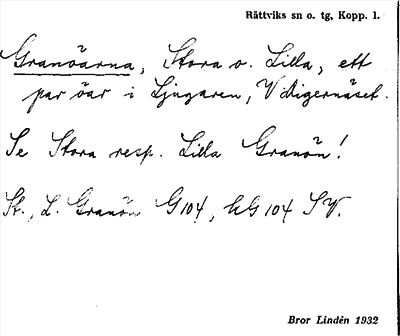 Rättviks sn o. tg, Kopp. l.
Granöarna, Stora o. Lilla, ett
par öar i Ljugaren, V Digernäset.
Se Stora resp. Lilla Granön!
St., L. Granön G104, hG104 SV.
Bror Lindén 1932